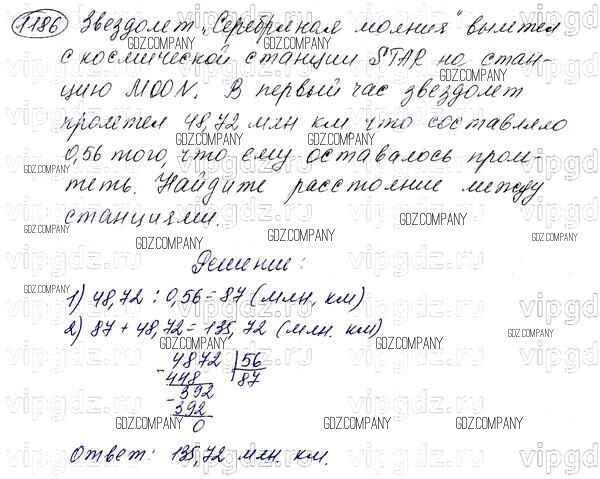 1186 Звездолет „Серебряная молния" вылетел
с космической станции STAR на стан-
цию MOON. В первый час звездолет
пролетел 48,72 млн км что составляло
0,56 того, что ему оставалось проле-
теть. Найдите расстояние между
станциями.
Решение:
1) 48,72 : 0,56 = 87 (млн. км)
2) 87 + 48,72 = 135,72 (млн. км)
- 4872 | 56
448 | 87
- 392
392
0
Ответ: 135,72 млн. км.
GDZ.COMPANY
vipgdz.ru